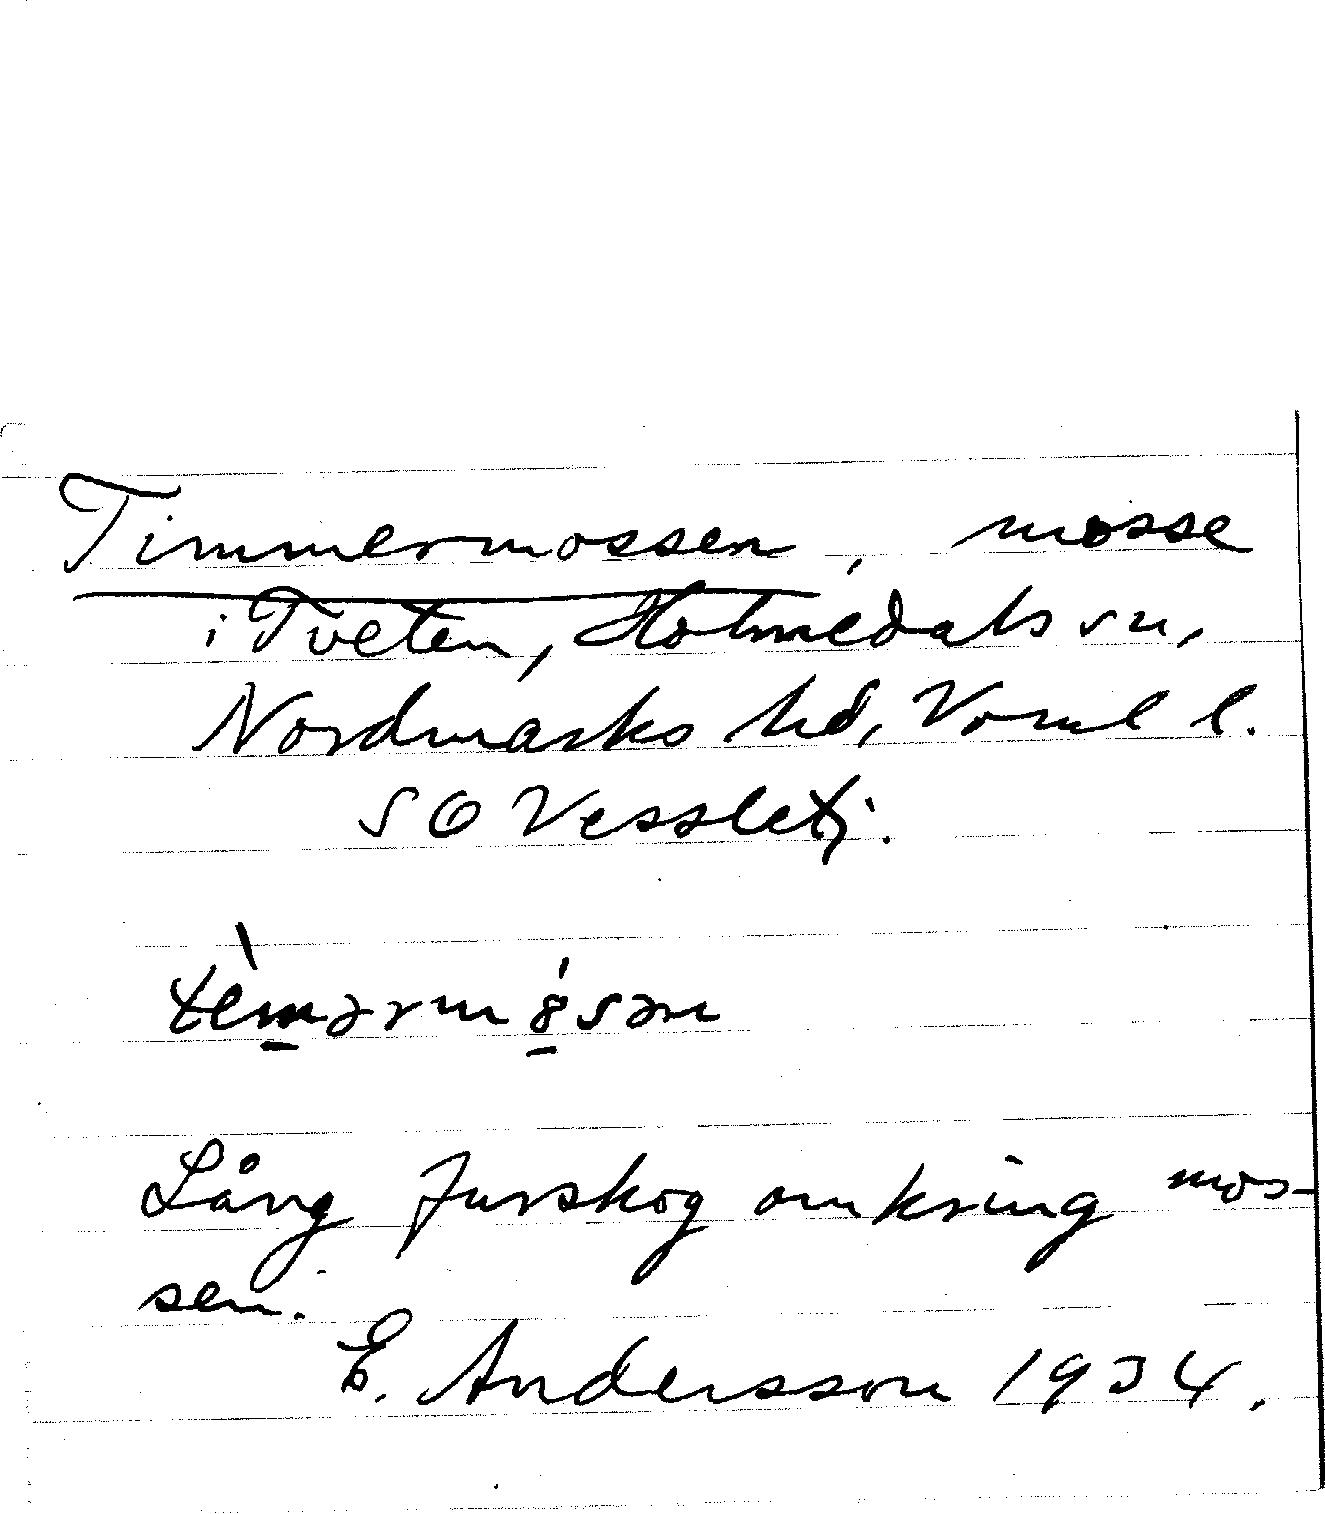 Timmermossen, mosse
i Tveten, Holmedals sn,
Nordmarks hd, Vrml l.
SO Vessletj.
Lång furskog omkring mos-
sen.
E. Andersson 1934.